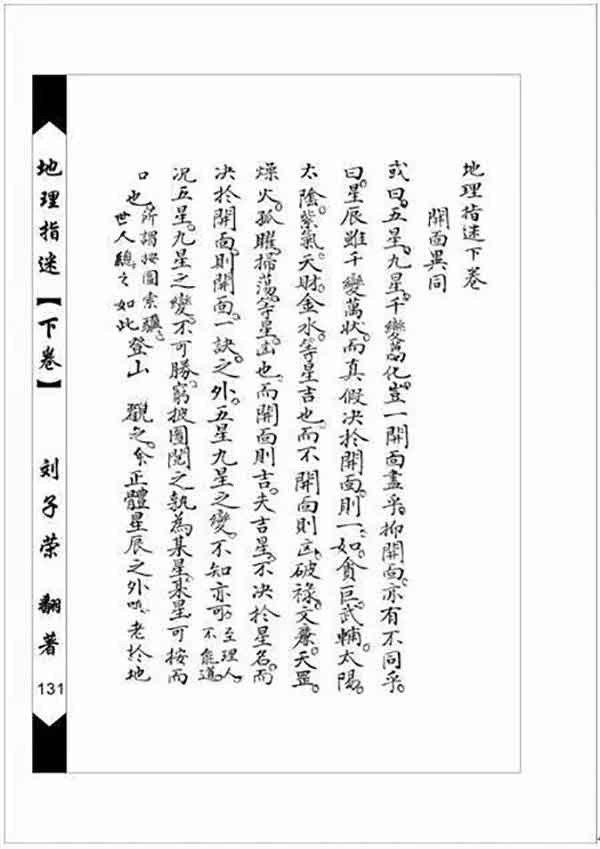 地理指迷下卷
開面異同
或曰。五星。九星。千變萬化。豈一開面盡乎。抑開面。亦有不同乎。
曰。星辰雖千變萬状。而真假决於開面。則一。如貪巨。武輔。太陽。
太陰。紫氣。天財。金水。等星吉也。而不開面則凶。破祿。文廉。天罡。
燥火。孤曜。掃蕩。等星凶也。而開面則吉。夫吉星。不决於星名。而
决於開面。則開面一訣。之外。五星九星之變。不知亦可。至理人。不能道。
况五星。九星之變。不可勝窮。披圖閱之。孰為某星。某星可按而
口也。所謂按圖索驥。世人總之如此登山 觀之。余正體星辰之外 老於地
地理指迷【下卷】 刘子荣 翻著
131